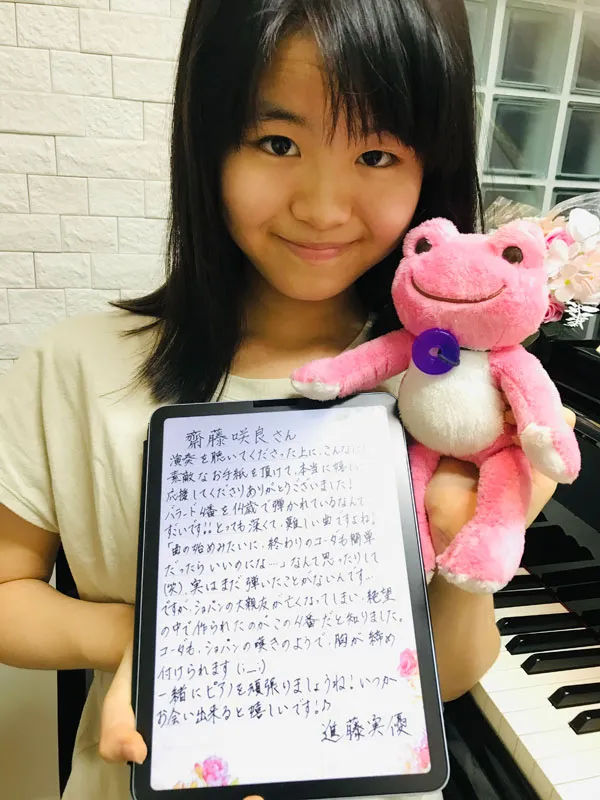 齋藤咲良さん
演奏を聴いてくださった上に、こんなに
素敵なお手紙を頂けて、本当に嬉しい
応援してくださりありがとうございました!
バラード4番を14歳で弾かれているなんて
すごいです!!とっても深くて、難しい曲ですよね!
「曲の始めみたいに、終わりのコーダも簡単
だったらいいのにな…」なんて思ったりして
(笑)、実はまだ弾いたことがないんです…
ですが、ショパンの大親友が亡くなってしまい、絶望
の中で作られたのがこの4番だと知りました。
コーダも、ショパンの嘆きのようで、胸が締め
付けられます(;_;)
一緒にピアノを頑張りましょうね!いつか
お会い出来ると嬉しいです!♪
進藤実優